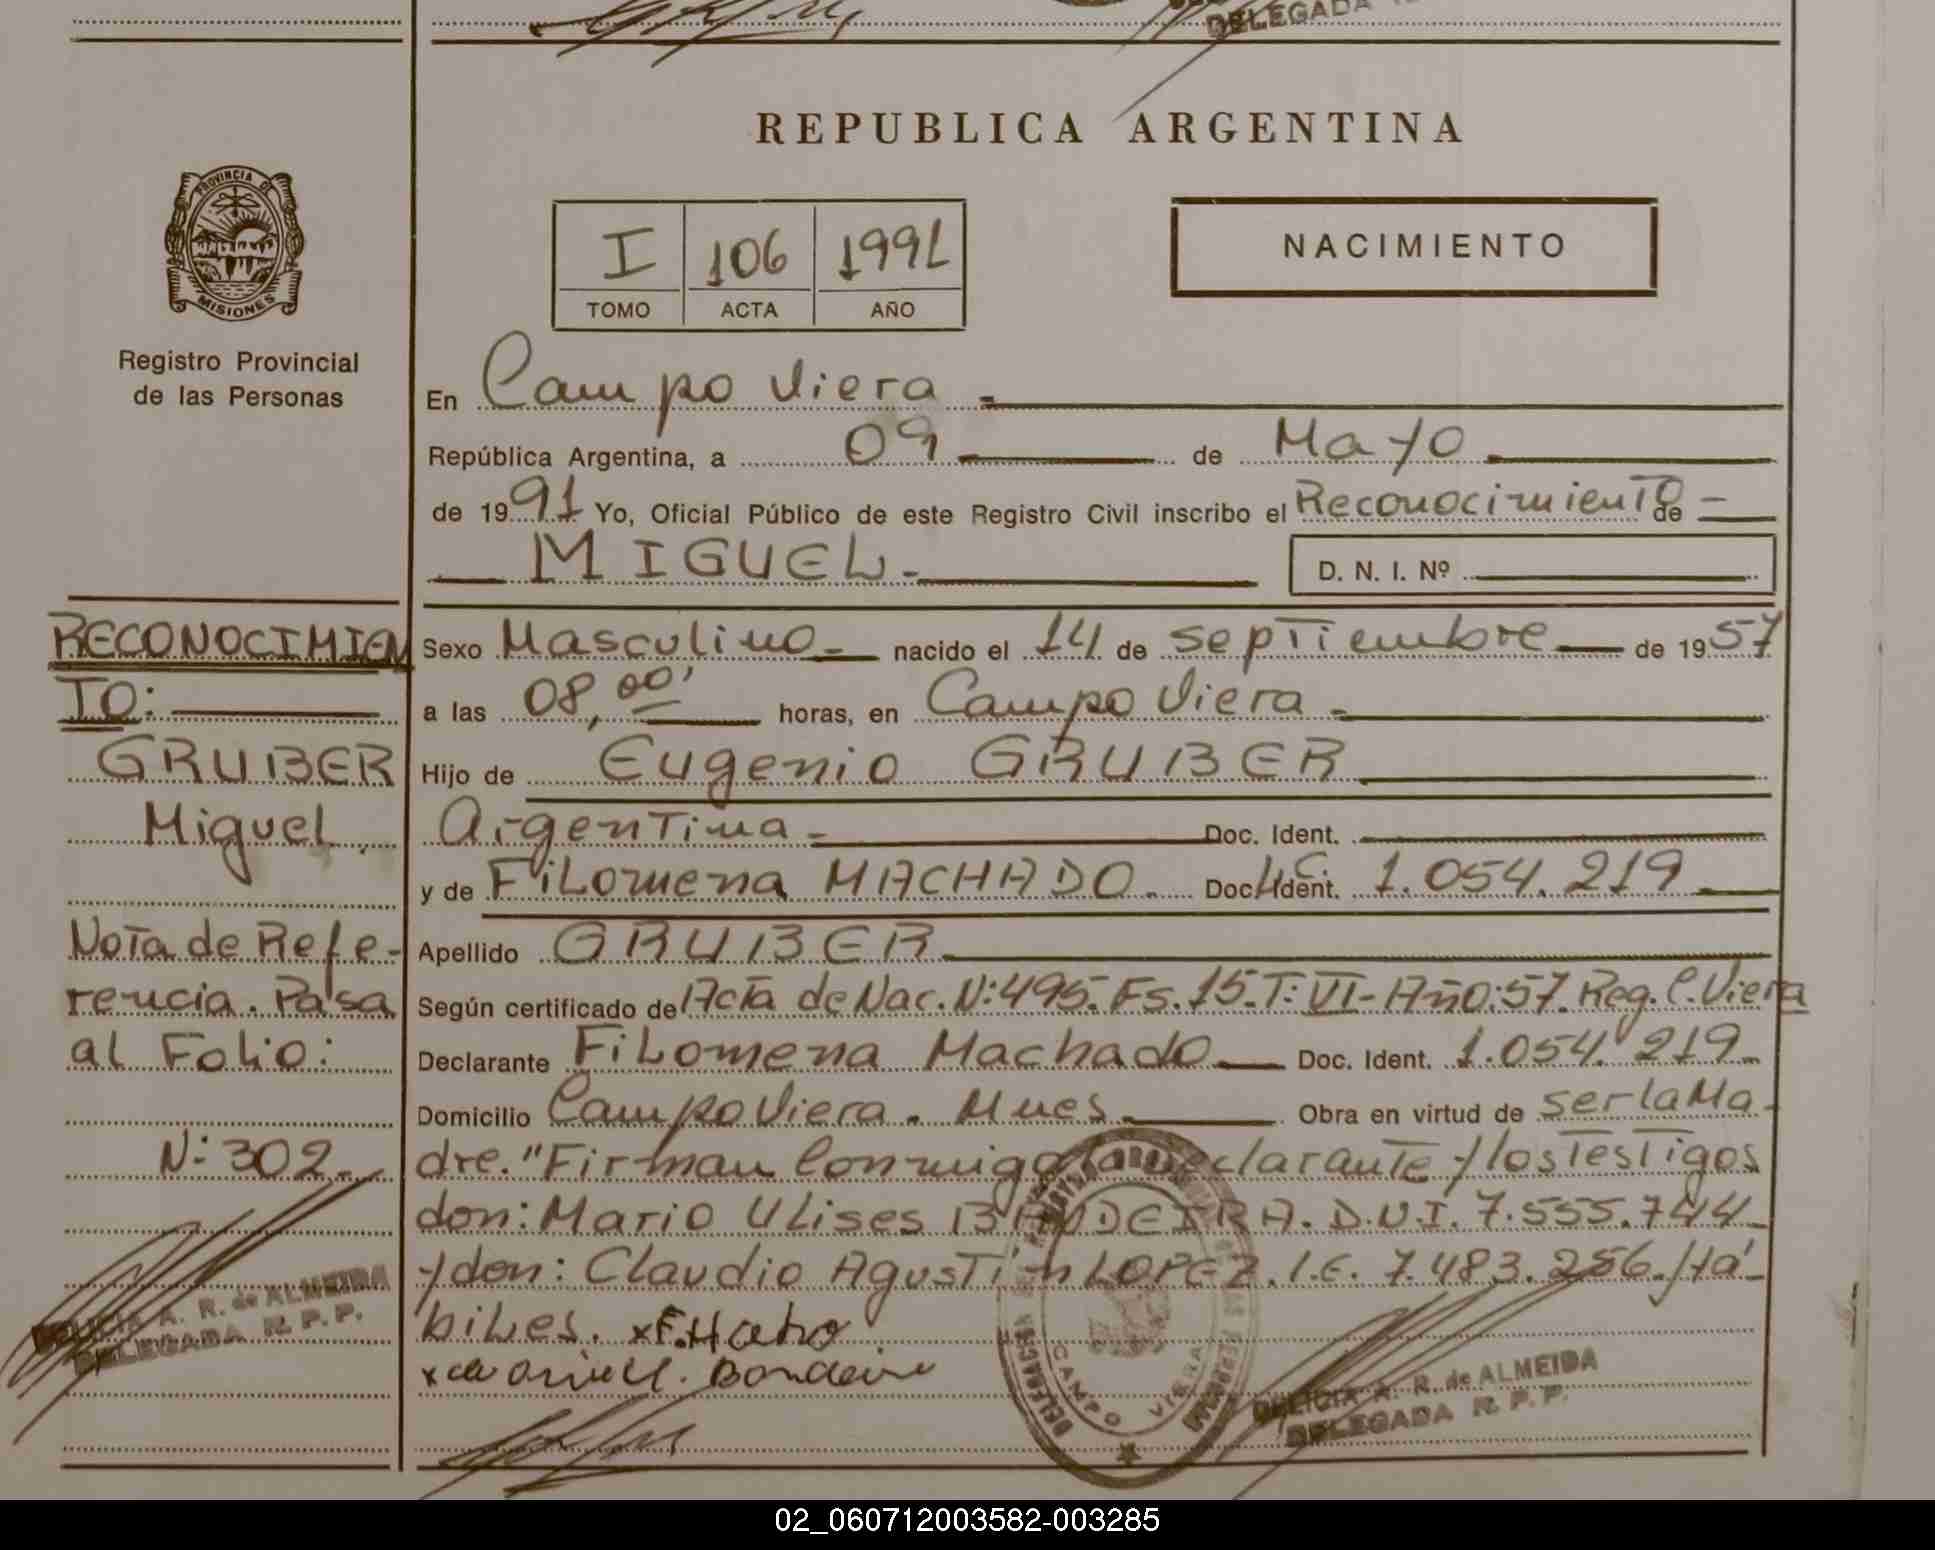 DELEGADA
REPUBLICA ARGENTINA
PROVINCIA DE
MISIONES
Registro Provincial
de las Personas
I 106 1991
TOMO ACTA AÑO
NACIMIENTO
En Campo Viera
República Argentina, a 09 de Mayo
de 1991 Yo, Oficial Público de este Registro Civil inscribo el Reconocimiento de
MIGUEL. D. N. I. Nº
RECONOCIMIEN
TO:
GRUBER
Miguel
Nota de Refe-
rencia. Pasa
al Folio:
N: 302
DELICIA A. R. de ALMEIDA
DELEGADA R. P. P.
Sexo Masculino nacido el 14 de septiembre de 1957
a las 08,00' horas, en Campo Viera
Hijo de Eugenio GRUBER
Argentina Doc. Ident.
y de Filomena MACHADO. Doc. Ident. L.C. 1.054.219
Apellido GRUBER
Según certificado de Acta de Nac. N: 495. Fs. 15. T: VI- Año: 57. Reg. C. Viera
Declarante Filomena Machado Doc. Ident. 1.054.219
Domicilio Campo Viera. Mnes. Obra en virtud de ser la Ma-
dre. "Firman Conmigo la declarante y los Testigos
don: Mario Ulises BANDEIRA. D.N.I. 7.555.744
y don: Claudio Agustin LOPEZ. I.E. 7.483.256./há-
biles.
CAMPO VIERA
DELICIA A. R. de ALMEIDA
DELEGADA R. P. P.
02_060712003582-003285